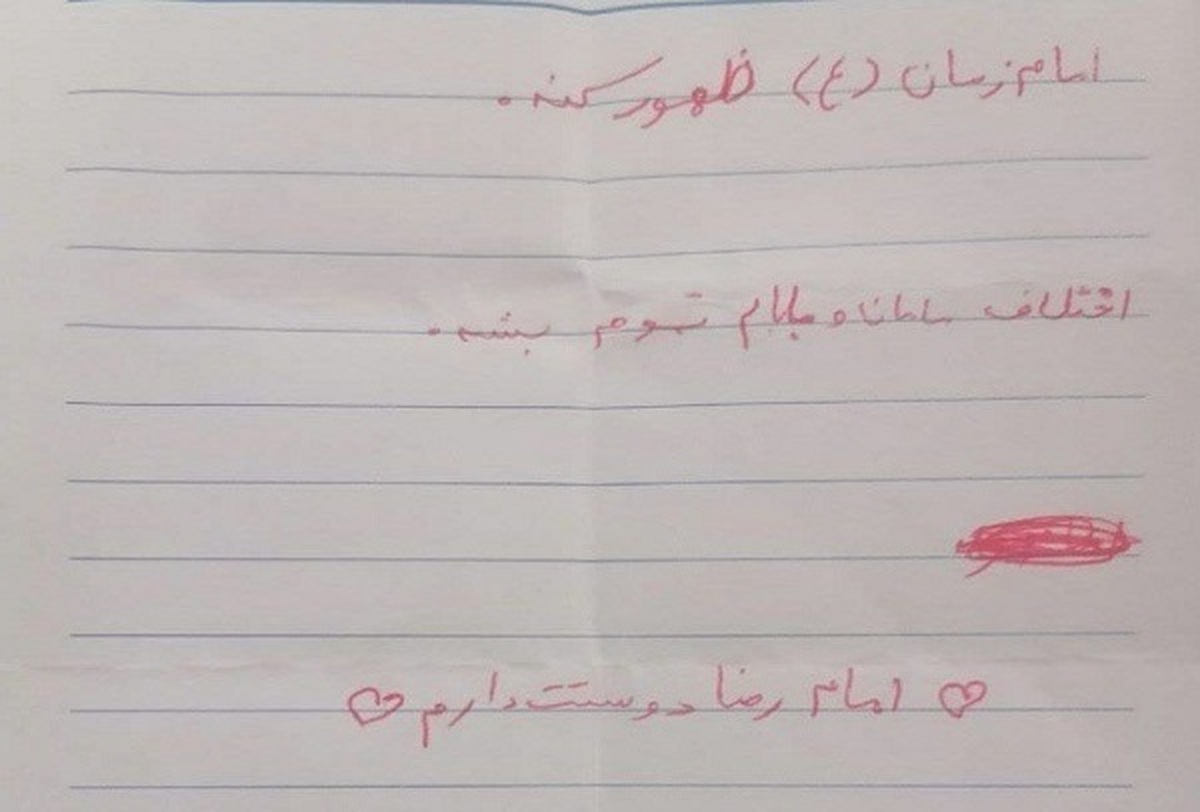 امام زمان (ع) ظهور کنه.
اختلاف مامانا و بابام تموم بشه.
♡ امام رضا دوستت دارم ♡